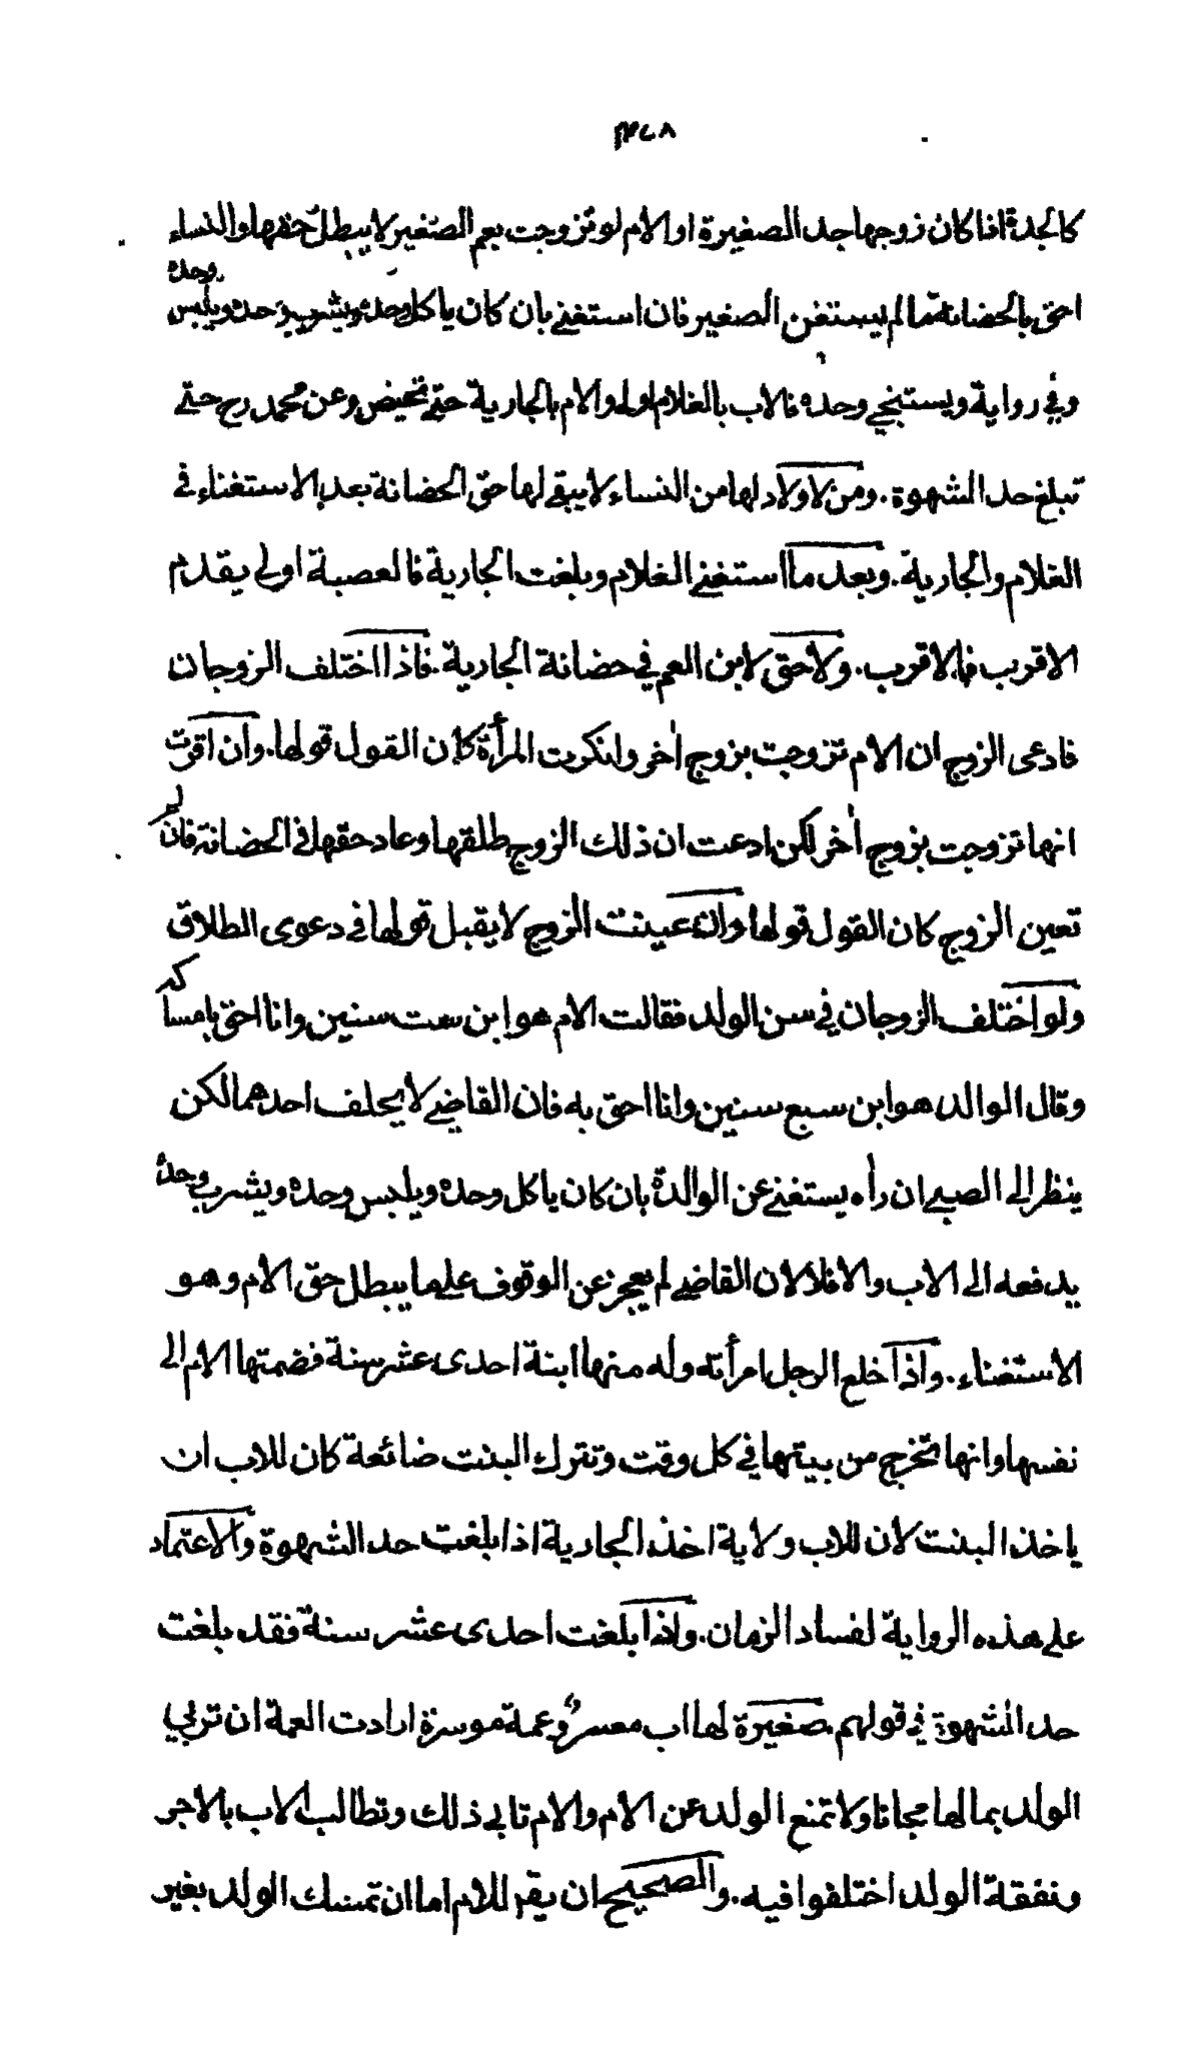 ٣٧٨
كالجدة اذا كان زوجها جد الصغيرة او الام لو تزوجت بعم الصغير لا يبطل حقها والنساء
احق بالحضانة ما لم يستغن الصغير فان استغنى بان كان ياكل وحده ويشرب وحده ويلبس وحده
وفي رواية ويستنجي وحده فالاب بالغلام اولى والام بالجارية حتى تحيض وعن محمد رح حتى
تبلغ حد الشهوة . ومن لا ولاد لها من النساء لا يبقى لها حق الحضانة بعد الاستغناء في
الغلام والجارية . وبعد ما استغنى الغلام وبلغت الجارية فالعصبة اولى يقدم
الاقرب فالاقرب . ولا حق لابن العم في حضانة الجارية . فاذا اختلف الزوجان
فادعى الزوج ان الام تزوجت بزوج اٰخر وانكرت المرأة كان القول قولها . وان اقرت
انها تزوجت بزوج اٰخر لكن ادعت ان ذلك الزوج طلقها وعاد حقها في الحضانة فان لم
تعين الزوج كان القول قولها وان عينت الزوج لا يقبل قولها في دعوى الطلاق
ولو اختلف الزوجان في سن الولد فقالت الام هو ابن ست سنين وانا احق بامساكه
وقال الوالد هو ابن سبع سنين وانا احق به فان القاضي لا يحلف احدهما لكن
ينظر الى الصبي ان رأه يستغنى عن الوالدة بان كان ياكل وحده ويلبس وحده ويشرب وحده
يدفعه الى الاب والا فلا لان القاضي لم يعجز عن الوقوف على ما يبطل حق الام وهو
الاستغناء . واذا خلع الرجل امرأته وله منها ابنة احدى عشر سنة فضمتها الام الى
نفسها وانها تخرج من بيتها في كل وقت وتترك البنت ضائعة كان للاب ان
ياخذ البنت لان للاب ولاية اخذ الجارية اذا بلغت حد الشهوة والاعتماد
على هذه الرواية لفساد الزمان . واذا بلغت احدى عشر سنة فقد بلغت
حد الشهوة في قولهم . صغيرة لها اب معسر وعمة موسرة ارادت العمة ان تربي
الولد بمالها مجانا ولا تمنع الولد عن الام والام تابى ذلك وتطالب الاب بالاجر
ونفقة الولد اختلفوا فيه . والصحيح ان يقال للام اما ان تمسك الولد بغير